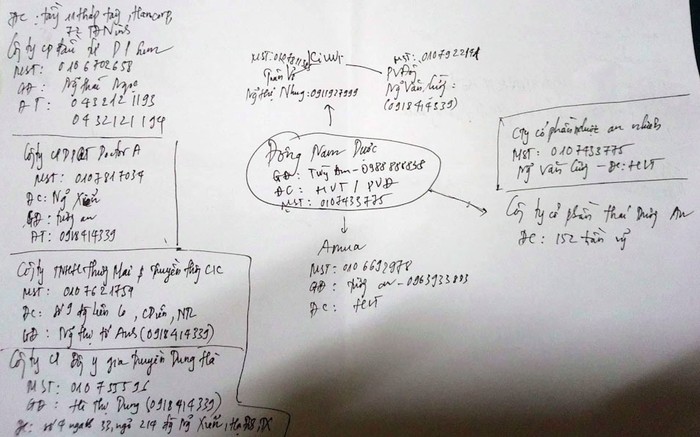 ĐC: tầng 11 tháp tây, Hancorp,
72 TĐ Ninh
Công ty cp đầu D P
MST: 0106702658
GĐ: Ng Thái Ngọc
ĐT: 0432121193
0432121194
Công ty CP DP QT Doctor A
MST: 0107817034
ĐC: Ng Xiển
GĐ: tường an
ĐT: 0918414339
Công ty TNHH thương Mại & truyền thông CIC
MST: 0107621759
ĐC: số 9 6, CDiễn, NTL
GĐ: Ng thị tú Anh (0918414339)
Công ty CP Đông y gia truyền Dung Hà
MST: 010755596
GĐ: Hà Thị Dung (0918414339)
ĐC: số 4 ngách 33, ngõ 214 đg Ng Xiển, Hạ Đình, TX
MST:
Trần Vỹ
Ng thị Nhung: 0911927999
MST: 010792219
PV Đồng
Ng Văn Cường:
(0918414339)
Đông Nam Dược
GĐ: Tường An - 0988886838
ĐC: HVT / PVĐ
MST: 0107433775
Amua
MST: 0106692978
GĐ: tường an - 0963933883
ĐC: HVT
Cty cổ phần dược an nhiên
MST: 0107433775
Ng Văn Cường - ĐC: HVT
Công ty cổ phần thái Dương An
ĐC: 152 trần vỹ